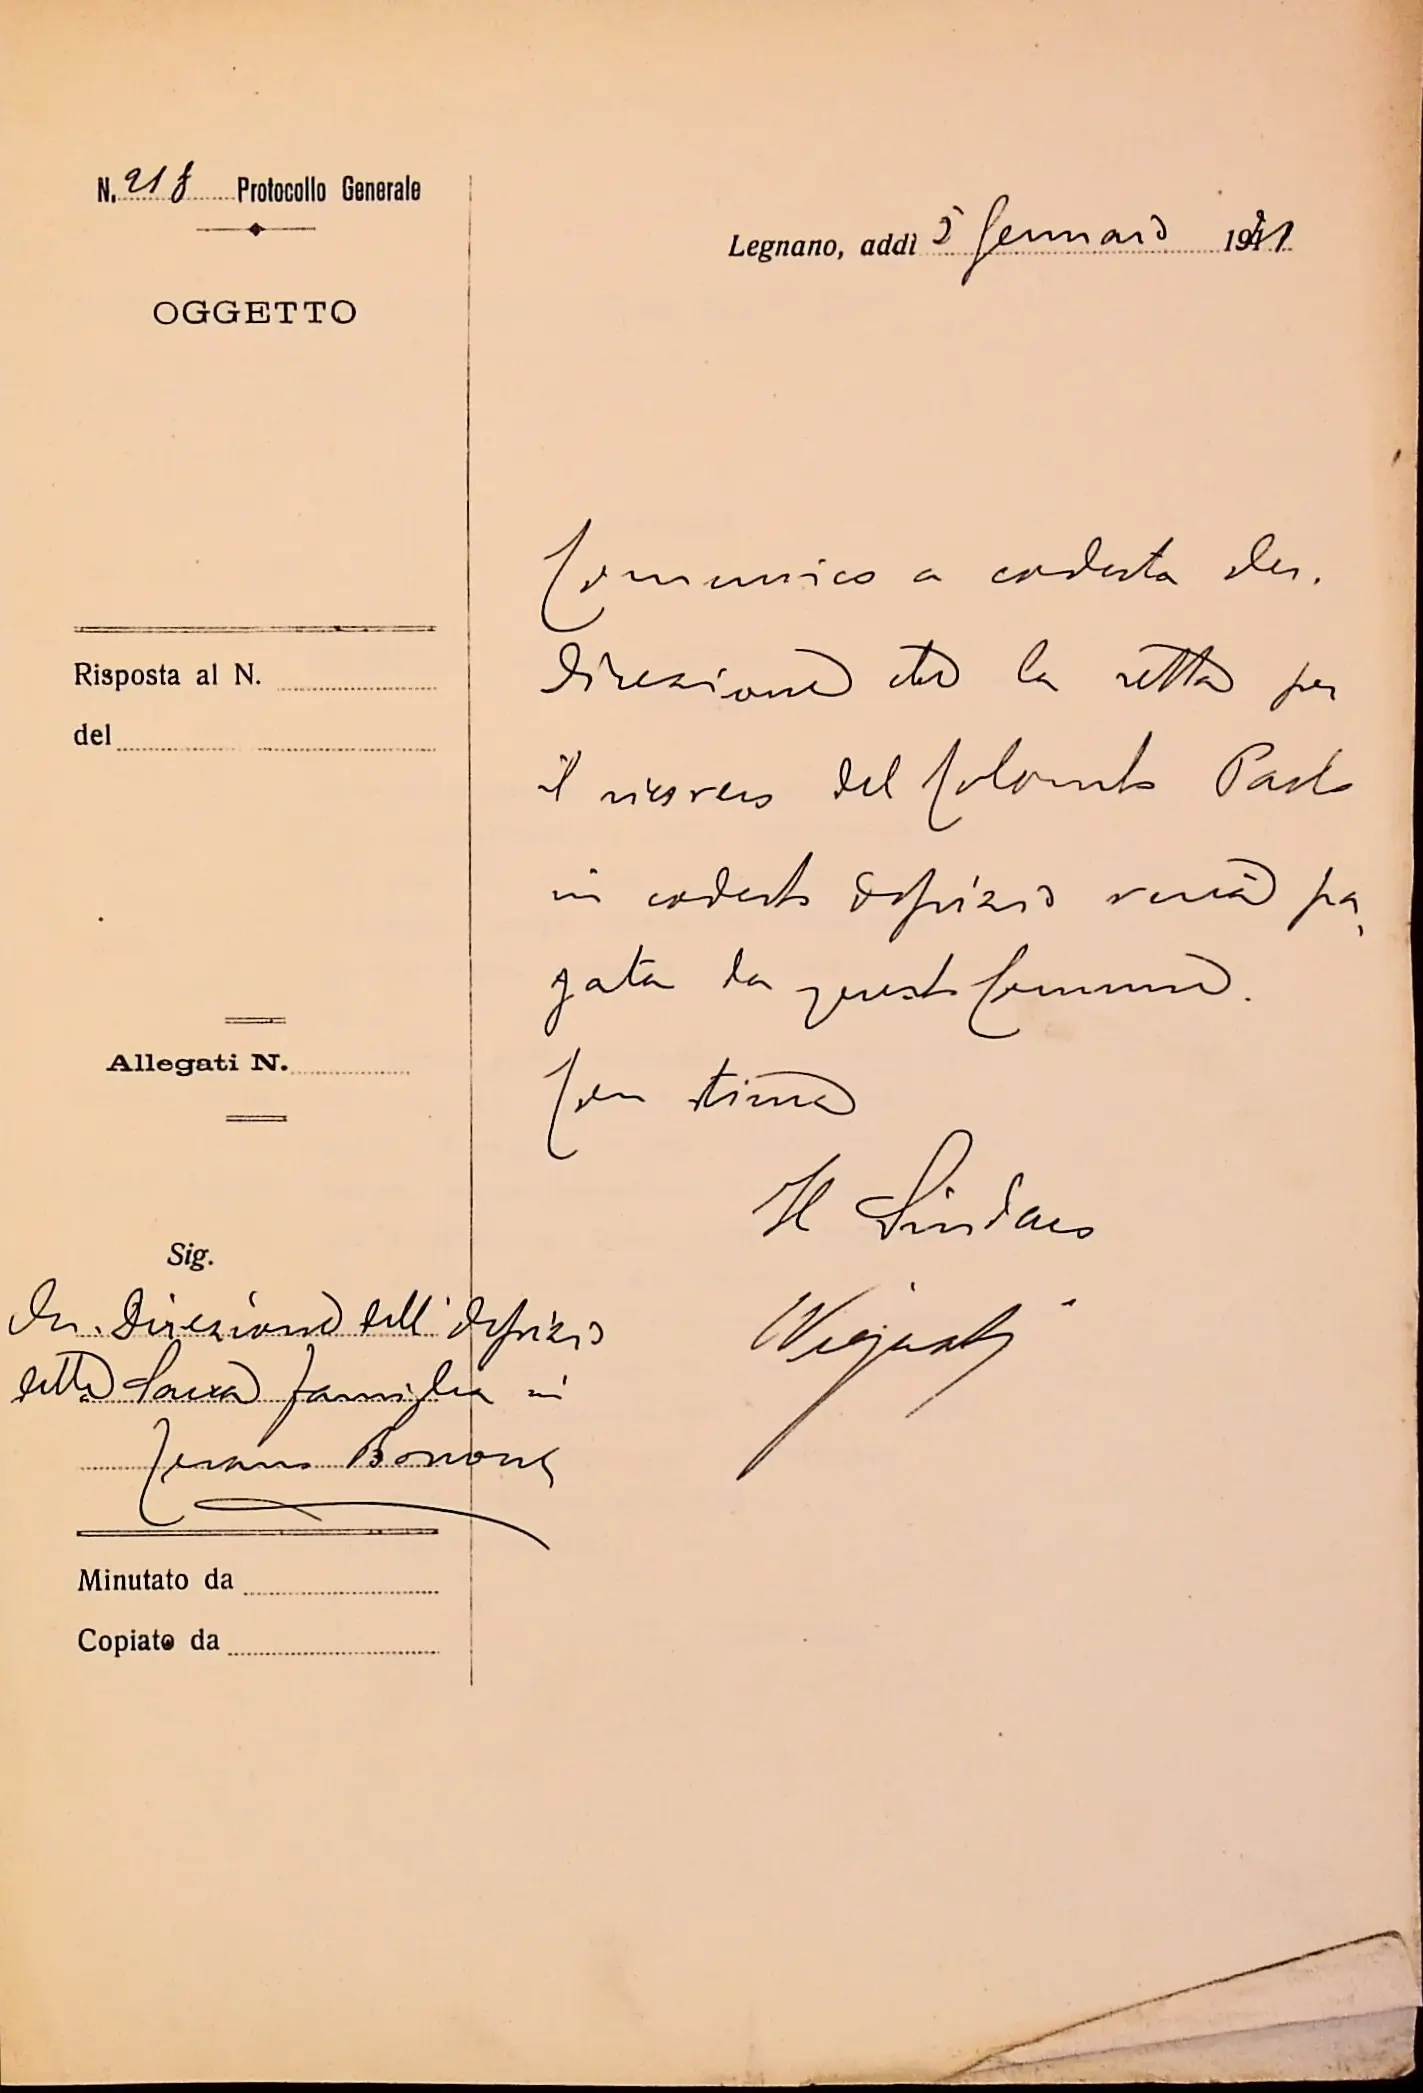 N. 218 Protocollo Generale
OGGETTO
Risposta al N.
del
Allegati N.
Sig.
On. Direzione dell'Ospizio
detto Sacra famiglia in
Cesano Boscone
Minutato da
Copiato da
Legnano, addì 5 Gennaio 1921
Comunico a codesta On.
Direzione che la retta per
il ricovero del Colombo Paolo
in codesto Ospizio verrà pa-
gata da questo Comune.
Con stima
Il Sindaco